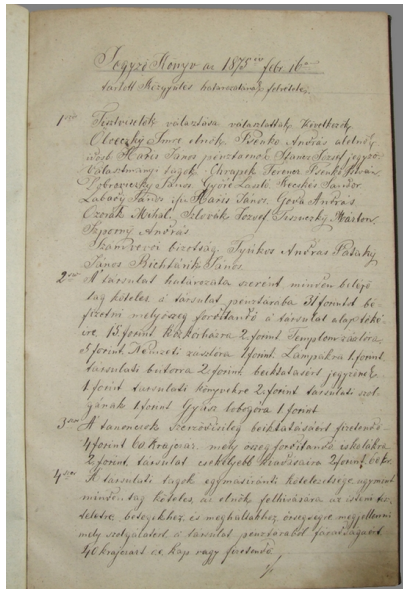 Jegyző Könyv az 1875 iv febr 16 án
tartott Közgyűlés határozatának felvétele.
1ször Tisztviselők választása választattak következők
Obeczky Imre elnök Psenko András alelnök
idősb Haris János pénztárnok Stancz József jegyző
Választmányi tagok Chrapek Ferencz Psenko István
Dobroveczky János Győri László Kecskés Sándor
Labady János ifj. Haris János. Gova András
Ozorák Mihál. Szlovák József Jeszneczky Márton
Szporny András
Számvevői bizotság Gyurkos András Pataky
János Bichtárik János
2szor A társulat határozata szerént minden belépő
tag köteles a társulat pénztárába 31 forintot be
fizetni mely összeg fordítandó a társulat alap tőké
ire 15 forint közkórházra 2 forint Templom zászlóra
5 forint Nemzeti zászlóra 1 forint. Lámpákra 1 forint
társulati bútorra 2 forint beiktatásért jegyzőnek
1 forint társulati könyvekre 2 forint társulati szol
gának 1 forint Gyász lobogóra 1 forint
3szor A tanonczok szerződésileg beiktatásáért fizetendő
4 forint 60 krajczár mely összeg fordítandó iskolákra
2 forint társulat csekélyebb kiadásaira 2 forint 60 kr.
4szer A társulati tagok egymásiránti kötelezetsége ugymint
minden tag köteles az elnök felhívására az isteni tisz
teletre betegekhez és meghaltakhoz összegyesen megjelenni
mely szolgálatért a társulat pénztárából fáradságáért
40 krajczárt ki kap vagy fizetendő